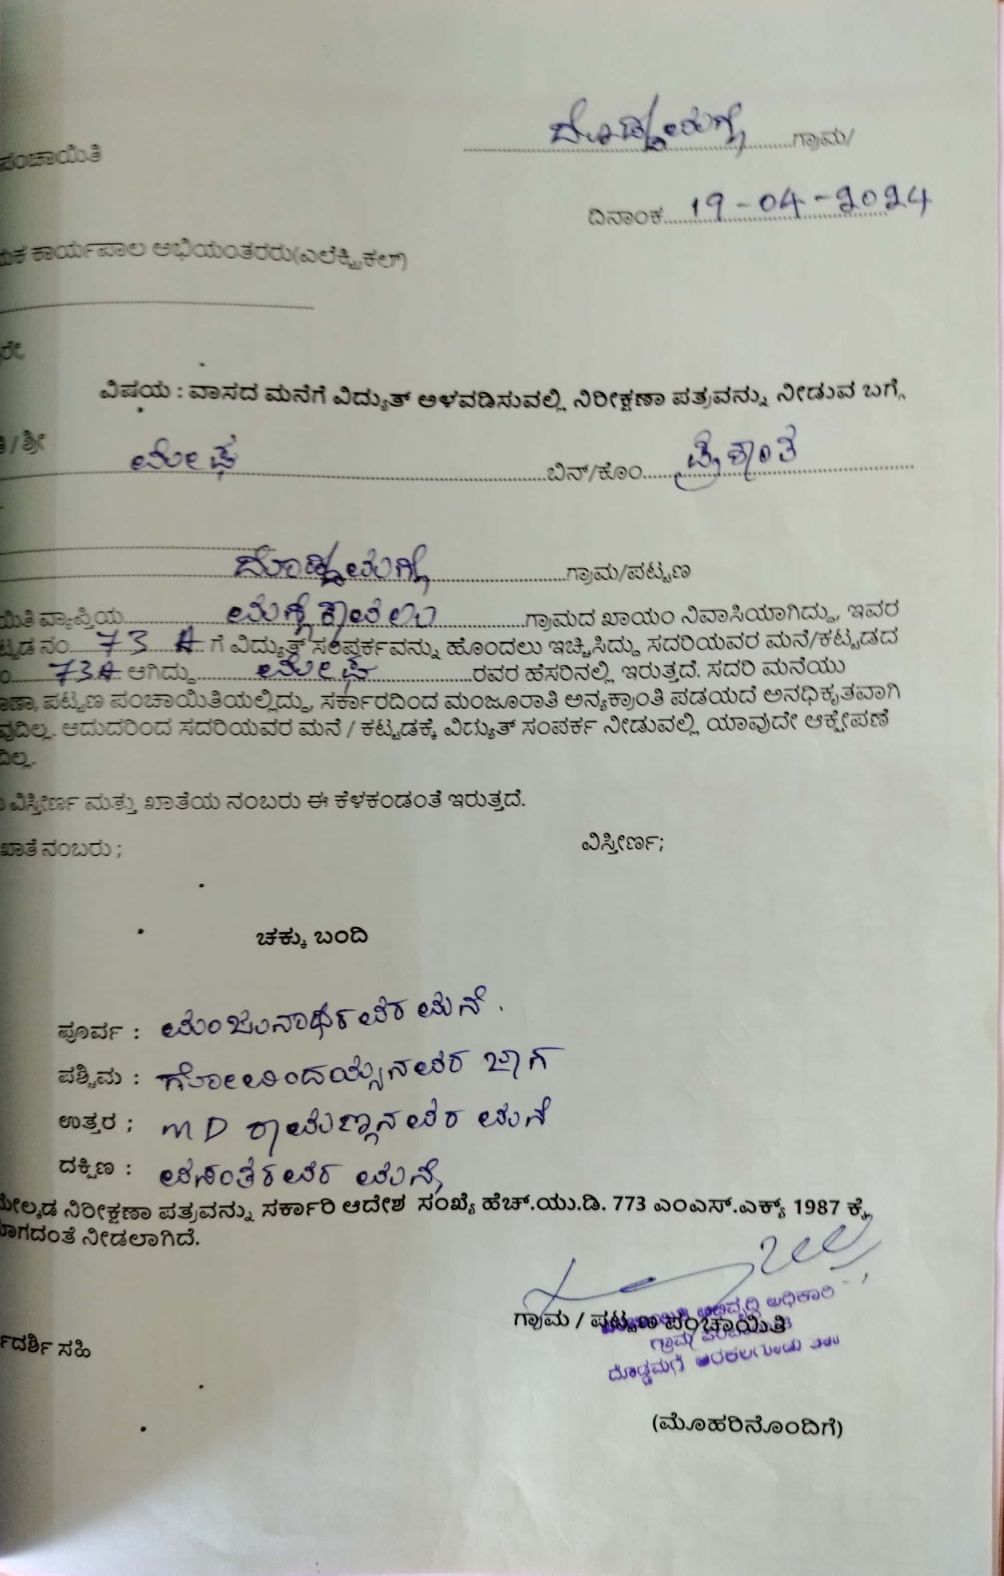 ದೊಡ್ಡಮಗ್ಗೆ ಗ್ರಾಮ/
ಪಂಚಾಯಿತಿ
ದಿನಾಂಕ 19-04-2024
ಕಾರ್ಯಪಾಲ ಅಭಿಯಂತರರು(ಎಲೆಕ್ಟ್ರಿಕಲ್)
ವಿಷಯ : ವಾಸದ ಮನೆಗೆ ವಿದ್ಯುತ್ ಅಳವಡಿಸುವಲ್ಲಿ ನಿರೀಕ್ಷಣಾ ಪತ್ರವನ್ನು ನೀಡುವ ಬಗ್ಗೆ
/ ಶ್ರೀ ಮೇಘ ಬಿನ್/ಕೊಂ ಪ್ರಶಾಂತ
ದೊಡ್ಡಮಗ್ಗೆ ಗ್ರಾಮ/ಪಟ್ಟಣ
ವ್ಯಾಪ್ತಿಯ ಗ್ರಾಮದ ಖಾಯಂ ನಿವಾಸಿಯಾಗಿದ್ದು, ಇವರ
ನಂ 73 A ಗೆ ವಿದ್ಯುತ್ ಸಂಪರ್ಕವನ್ನು ಹೊಂದಲು ಇಚ್ಚಿಸಿದ್ದು ಸದರಿಯವರ ಮನೆ/ಕಟ್ಟಡದ
73A ಆಗಿದ್ದು ಮೇಘ ರವರ ಹೆಸರಿನಲ್ಲಿ ಇರುತ್ತದೆ. ಸದರಿ ಮನೆಯು
ಪಟ್ಟಣ ಪಂಚಾಯಿತಿಯಲ್ಲಿದ್ದು, ಸರ್ಕಾರದಿಂದ ಮಂಜೂರಾತಿ ಅನ್ಯಕ್ರಾಂತಿ ಪಡೆಯದೆ ಅನಧಿಕೃತವಾಗಿ
ಆದುದರಿಂದ ಸದರಿಯವರ ಮನೆ / ಕಟ್ಟಡಕ್ಕೆ ವಿದ್ಯುತ್ ಸಂಪರ್ಕ ನೀಡುವಲ್ಲಿ ಯಾವುದೇ ಆಕ್ಷೇಪಣೆ
ವಿಸ್ತೀರ್ಣ ಮತ್ತು ಖಾತೆಯ ನಂಬರು ಈ ಕೆಳಕಂಡಂತೆ ಇರುತ್ತದೆ.
ಖಾತೆ ನಂಬರು ; ವಿಸ್ತೀರ್ಣ;
ಚಕ್ಕು ಬಂದಿ
ಪೂರ್ವ : ಮಂಜುನಾಥರವರ ಮನೆ.
ಪಶ್ಚಿಮ : ಗೋವಿಂದಯ್ಯನವರ ಜಾಗ
ಉತ್ತರ ; M D ರಾಮಣ್ಣನವರ ಮನೆ
ದಕ್ಷಿಣ : ವಸಂತರವರ ಮನೆ
ಮೇಲ್ಕಡ ನಿರೀಕ್ಷಣಾ ಪತ್ರವನ್ನು ಸರ್ಕಾರಿ ಆದೇಶ ಸಂಖ್ಯೆ ಹೆಚ್.ಯು.ಡಿ. 773 ಎಂಎಸ್.ಎಕ್ಸ್ 1987 ಕ್ಕೆ
ನೀಡಲಾಗಿದೆ.
ಅಭಿವೃದ್ಧಿ ಅಧಿಕಾರಿ
ಗ್ರಾಮ / ಪಟ್ಟಣ ಪಂಚಾಯಿತಿ
ಗ್ರಾಮ
ದೊಡ್ಡಮಗ್ಗೆ ಅರಕಲಗೂಡು
ಸಹಿ
(ಮೊಹರಿನೊಂದಿಗೆ)